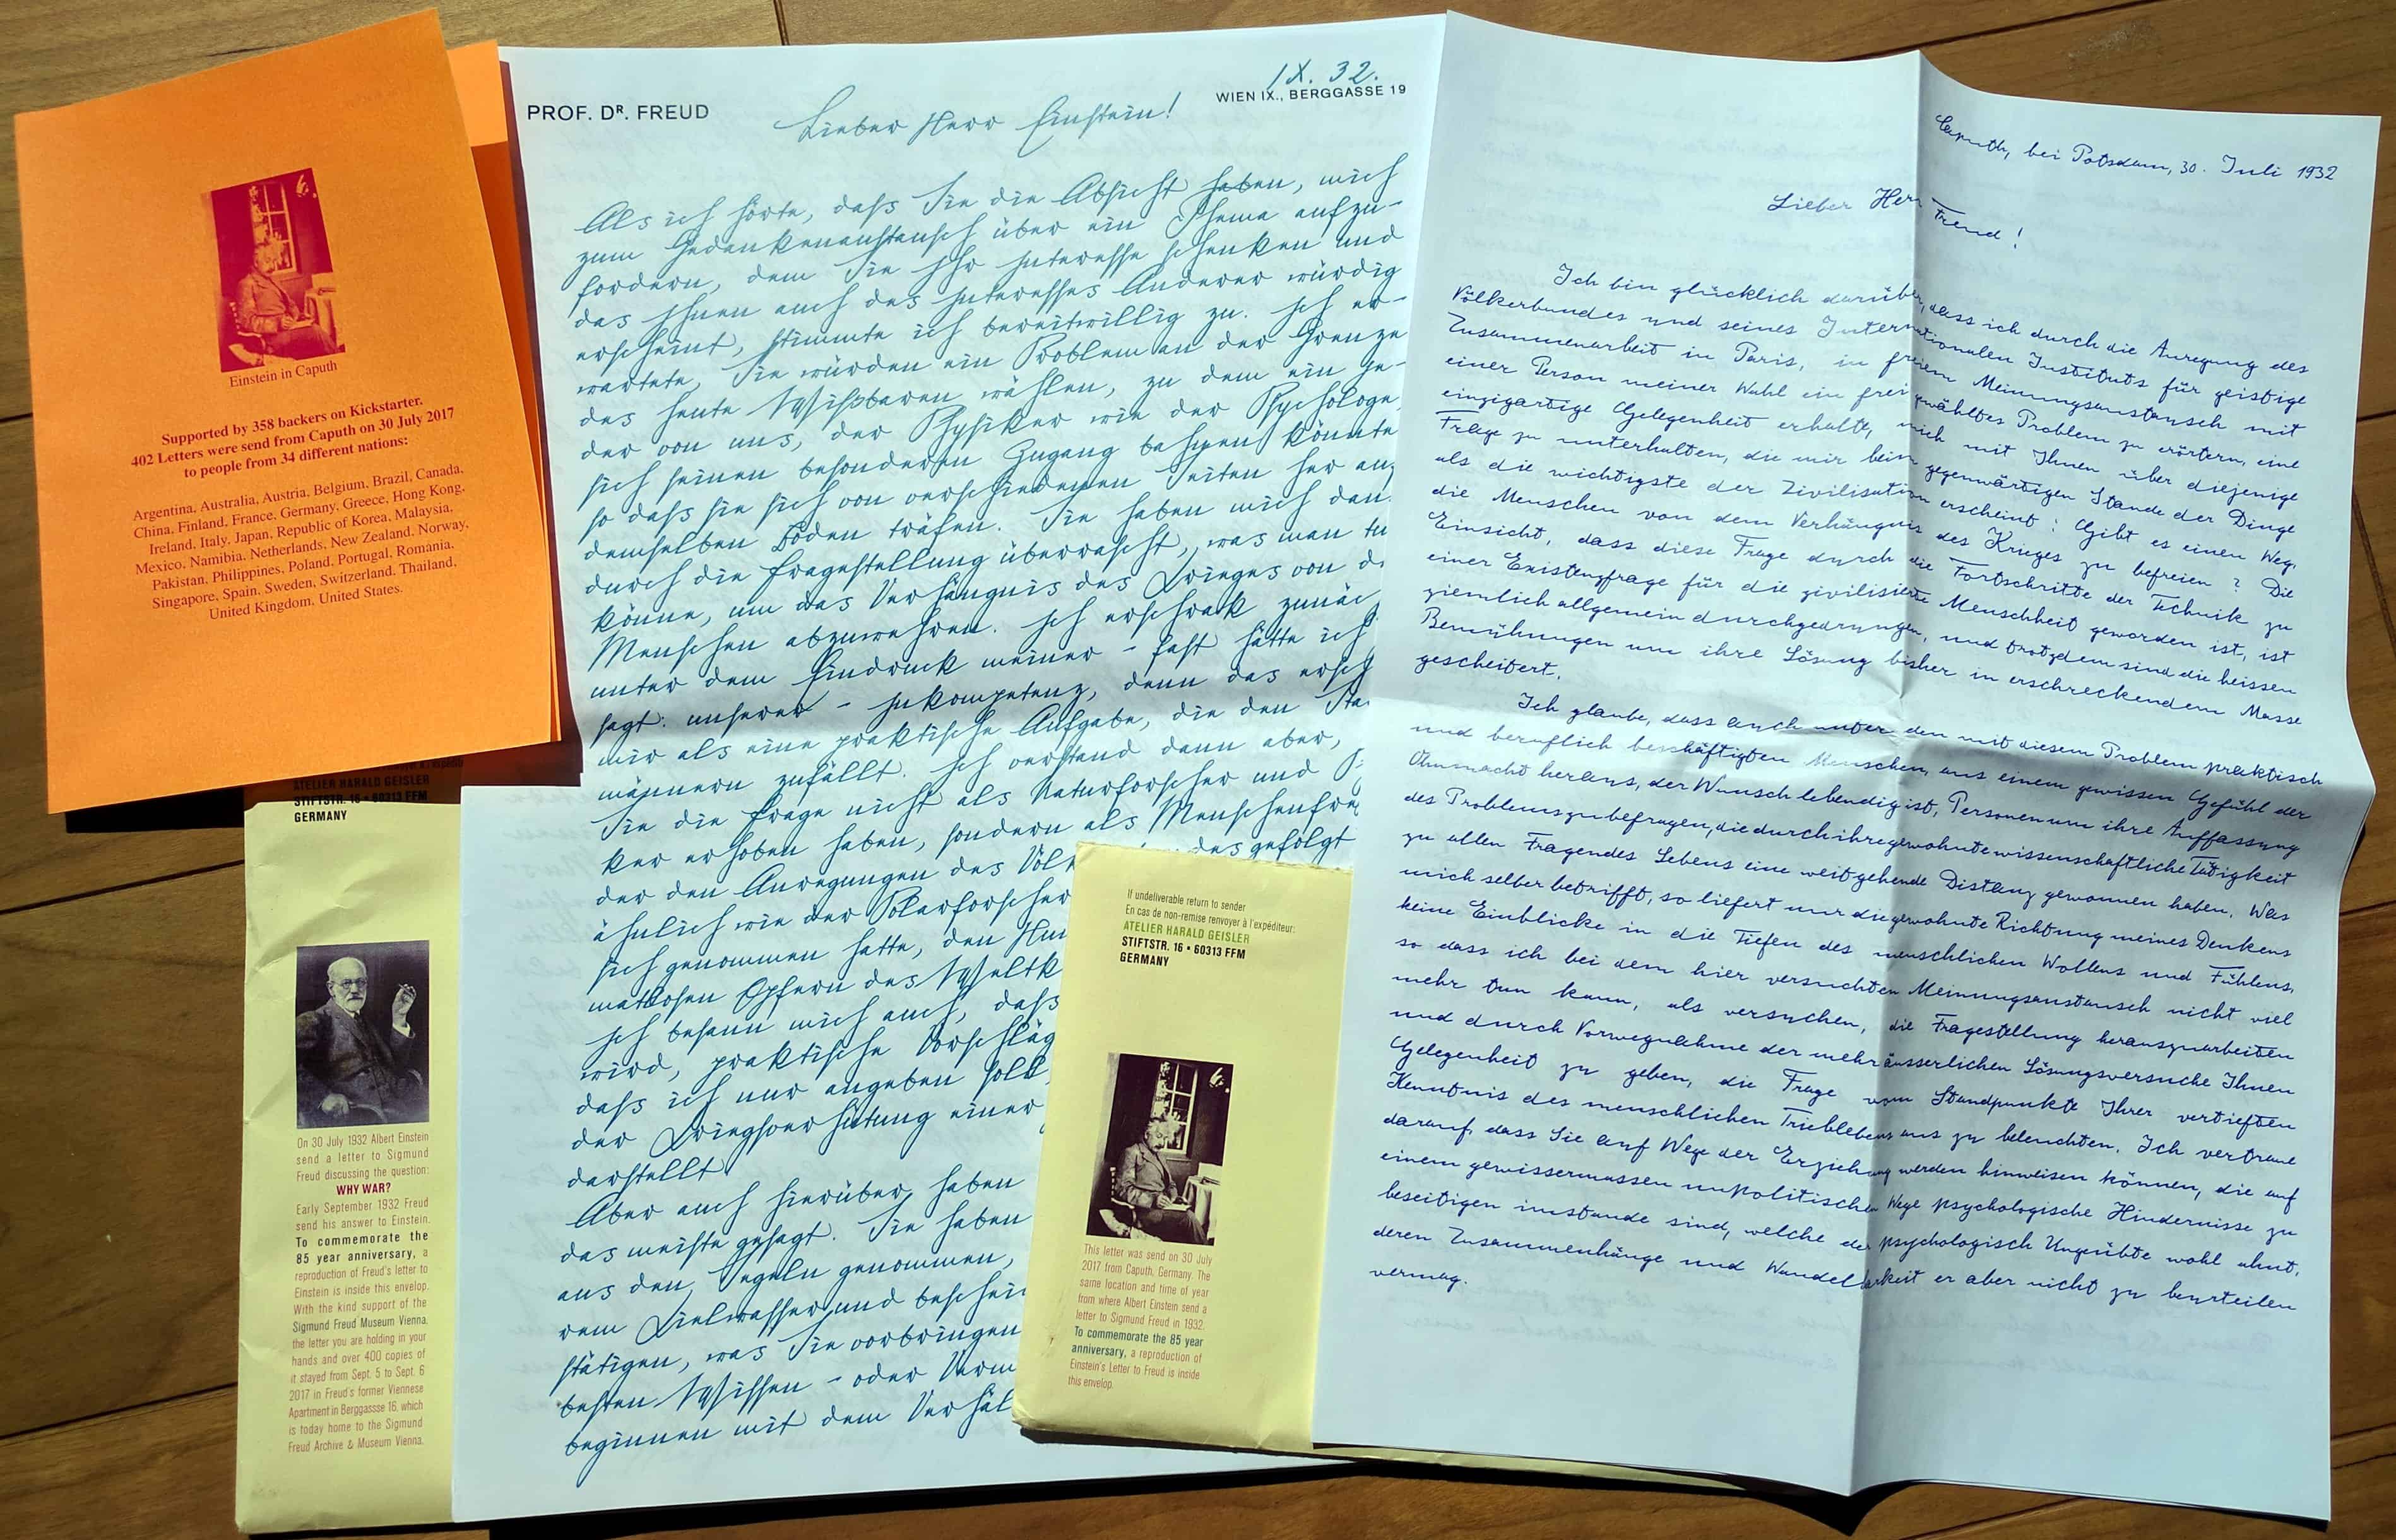 Einstein in Caputh
Supported by 358 backers on Kickstarter.
402 Letters were send from Caputh on 30 July 2017
to people from 34 different nations:
Argentina, Australia, Austria, Belgium, Brazil, Canada,
China, Finland, France, Germany, Greece, Hong Kong,
Ireland, Italy, Japan, Republic of Korea, Malaysia,
Mexico, Namibia, Netherlands, New Zealand, Norway,
Pakistan, Philippines, Poland, Portugal, Romania,
Singapore, Spain, Sweden, Switzerland, Thailand,
United Kingdom, United States.
ATELIER HARALD GEISLER
STIFTSTR. 16 • 60313 FFM
GERMANY
On 30 July 1932 Albert Einstein
send a letter to Sigmund
Freud discussing the question:
WHY WAR?
Early September 1932 Freud
send his answer to Einstein.
To commemorate the
85 year anniversary, a
reproduction of Freud's letter to
Einstein is inside this envelop.
With the kind support of the
Sigmund Freud Museum Vienna,
the letter you are holding in your
hands and over 400 copies of
it stayed from Sept. 5 to Sept. 6
2017 in Freud's former Viennese
Apartment in Berggassse 16, which
is today home to the Sigmund
Freud Archive & Museum Vienna.
IX. 32.
PROF. DR. FREUD
WIEN IX., BERGGASSE 19
Lieber Herr Einstein!
Als ich hörte, daß Sie die Absicht haben, mich
zum Gedankenaustausch über ein Thema aufzu-
fordern, dem Sie Ihr Interesse schenken und
das Ihnen auch des Interesses Anderer würdig
erscheint, stimmte ich bereitwillig zu. Ich er-
wartete, Sie würden ein Problem an der Grenze
des heute Wißbaren wählen, zu dem ein je-
der von uns, der Physiker wie der Psychologe,
sich seinen besonderen Zugang bahnen könnte
so daß sie sich von verschiedenen Seiten her auf
demselben Boden träfen. Sie haben mich dan
durch die Fragestellung überrascht, was man tu
könne, um das Verhängnis des Krieges von d
Menschen abzuwehren. Ich erschrak zunäc
unter dem Eindruck meiner – fast hätte ich
sagt: unserer – Inkompetenz, denn das ersch
mir als eine praktische Aufgabe, die den Sta
männern zufällt. Ich verstand dann aber,
Sie die Frage nicht als Naturforscher und P
ker erhoben haben, sondern als Menschenfre
der den Anregungen des Völk des gefolgt
ähnlich wie der Polarforscher
sich genommen hatte, den Hun
matlosen Opfern des Weltk
Ich besann mich auch, daß
wird, praktische Vorschläg
daß ich nur angeben soll,
der Kriegsverhütung einer
darstellt.
Aber auch hierüber haben
das meiste gesagt. Sie haben
aus den Segeln genommen,
rem Kielwasser und beschei
stätigen, was Sie vorbringen
besten Wissen – oder Verm
beginnen mit dem Verhäl
If undeliverable return to sender
En cas de non-remise renvoyer à l'expéditeur:
ATELIER HARALD GEISLER
STIFTSTR. 16 • 60313 FFM
GERMANY
This letter was send on 30 July
2017 from Caputh, Germany. The
same location and time of year
from where Albert Einstein send a
letter to Sigmund Freud in 1932.
To commemorate the 85 year
anniversary, a reproduction of
Einstein's Letter to Freud is inside
this envelop.
Caputh, bei Potsdam, 30. Juli 1932
Lieber Herr Freud!
Ich bin glücklich darüber, dass ich durch die Anregung des
Völkerbundes und seines Internationalen Instituts für geistige
Zusammenarbeit in Paris, in freiem Meinungsaustausch mit
einer Person meiner Wahl ein frei gewähltes Problem zu erörtern, eine
einzigartige Gelegenheit erhalte, mich mit Ihnen über diejenige
Frage zu unterhalten, die mir beim gegenwärtigen Stande der Dinge
als die wichtigste der Zivilisation erscheint: Gibt es einen Weg,
die Menschen von dem Verhängnis des Krieges zu befreien? Die
Einsicht, dass diese Frage durch die Fortschritte der Technik zu
einer Existenzfrage für die zivilisierte Menschheit geworden ist, ist
ziemlich allgemein durchgedrungen, und trotzdem sind die heissen
Bemühungen um ihre Lösung bisher in erschreckendem Masse
gescheitert.
Ich glaube, dass auch unter den mit diesem Problem praktisch
und beruflich beschäftigten Menschen, aus einem gewissen Gefühl der
Ohnmacht heraus, der Wunsch lebendig ist, Personen um ihre Auffassung
des Problems zu befragen, die durch ihre gewohnte wissenschaftliche Tätigkeit
zu allen Fragen des Lebens eine weitgehende Distanz gewonnen haben. Was
mich selber betrifft, so liefert mir die gewohnte Richtung meines Denkens
keine Einblicke in die Tiefen des menschlichen Wollens und Fühlens,
so dass ich bei dem hier versuchten Meinungsaustausch nicht viel
mehr tun kann, als versuchen, die Fragestellung herauszuarbeiten
und durch Vorwegnahme der mehr äusserlichen Lösungsversuche Ihnen
Gelegenheit zu geben, die Frage vom Standpunkte Ihrer vertieften
Kenntnis des menschlichen Trieblebens aus zu beleuchten. Ich vertraue
darauf, dass Sie auf Wege der Erziehung werden hinweisen können, die auf
einem gewissermassen unpolitischen Wege psychologische Hindernisse zu
beseitigen imstande sind, welche der psychologisch Ungeübte wohl ahnt,
deren Zusammenhänge und Wandelbarkeit er aber nicht zu beurteilen
vermag.